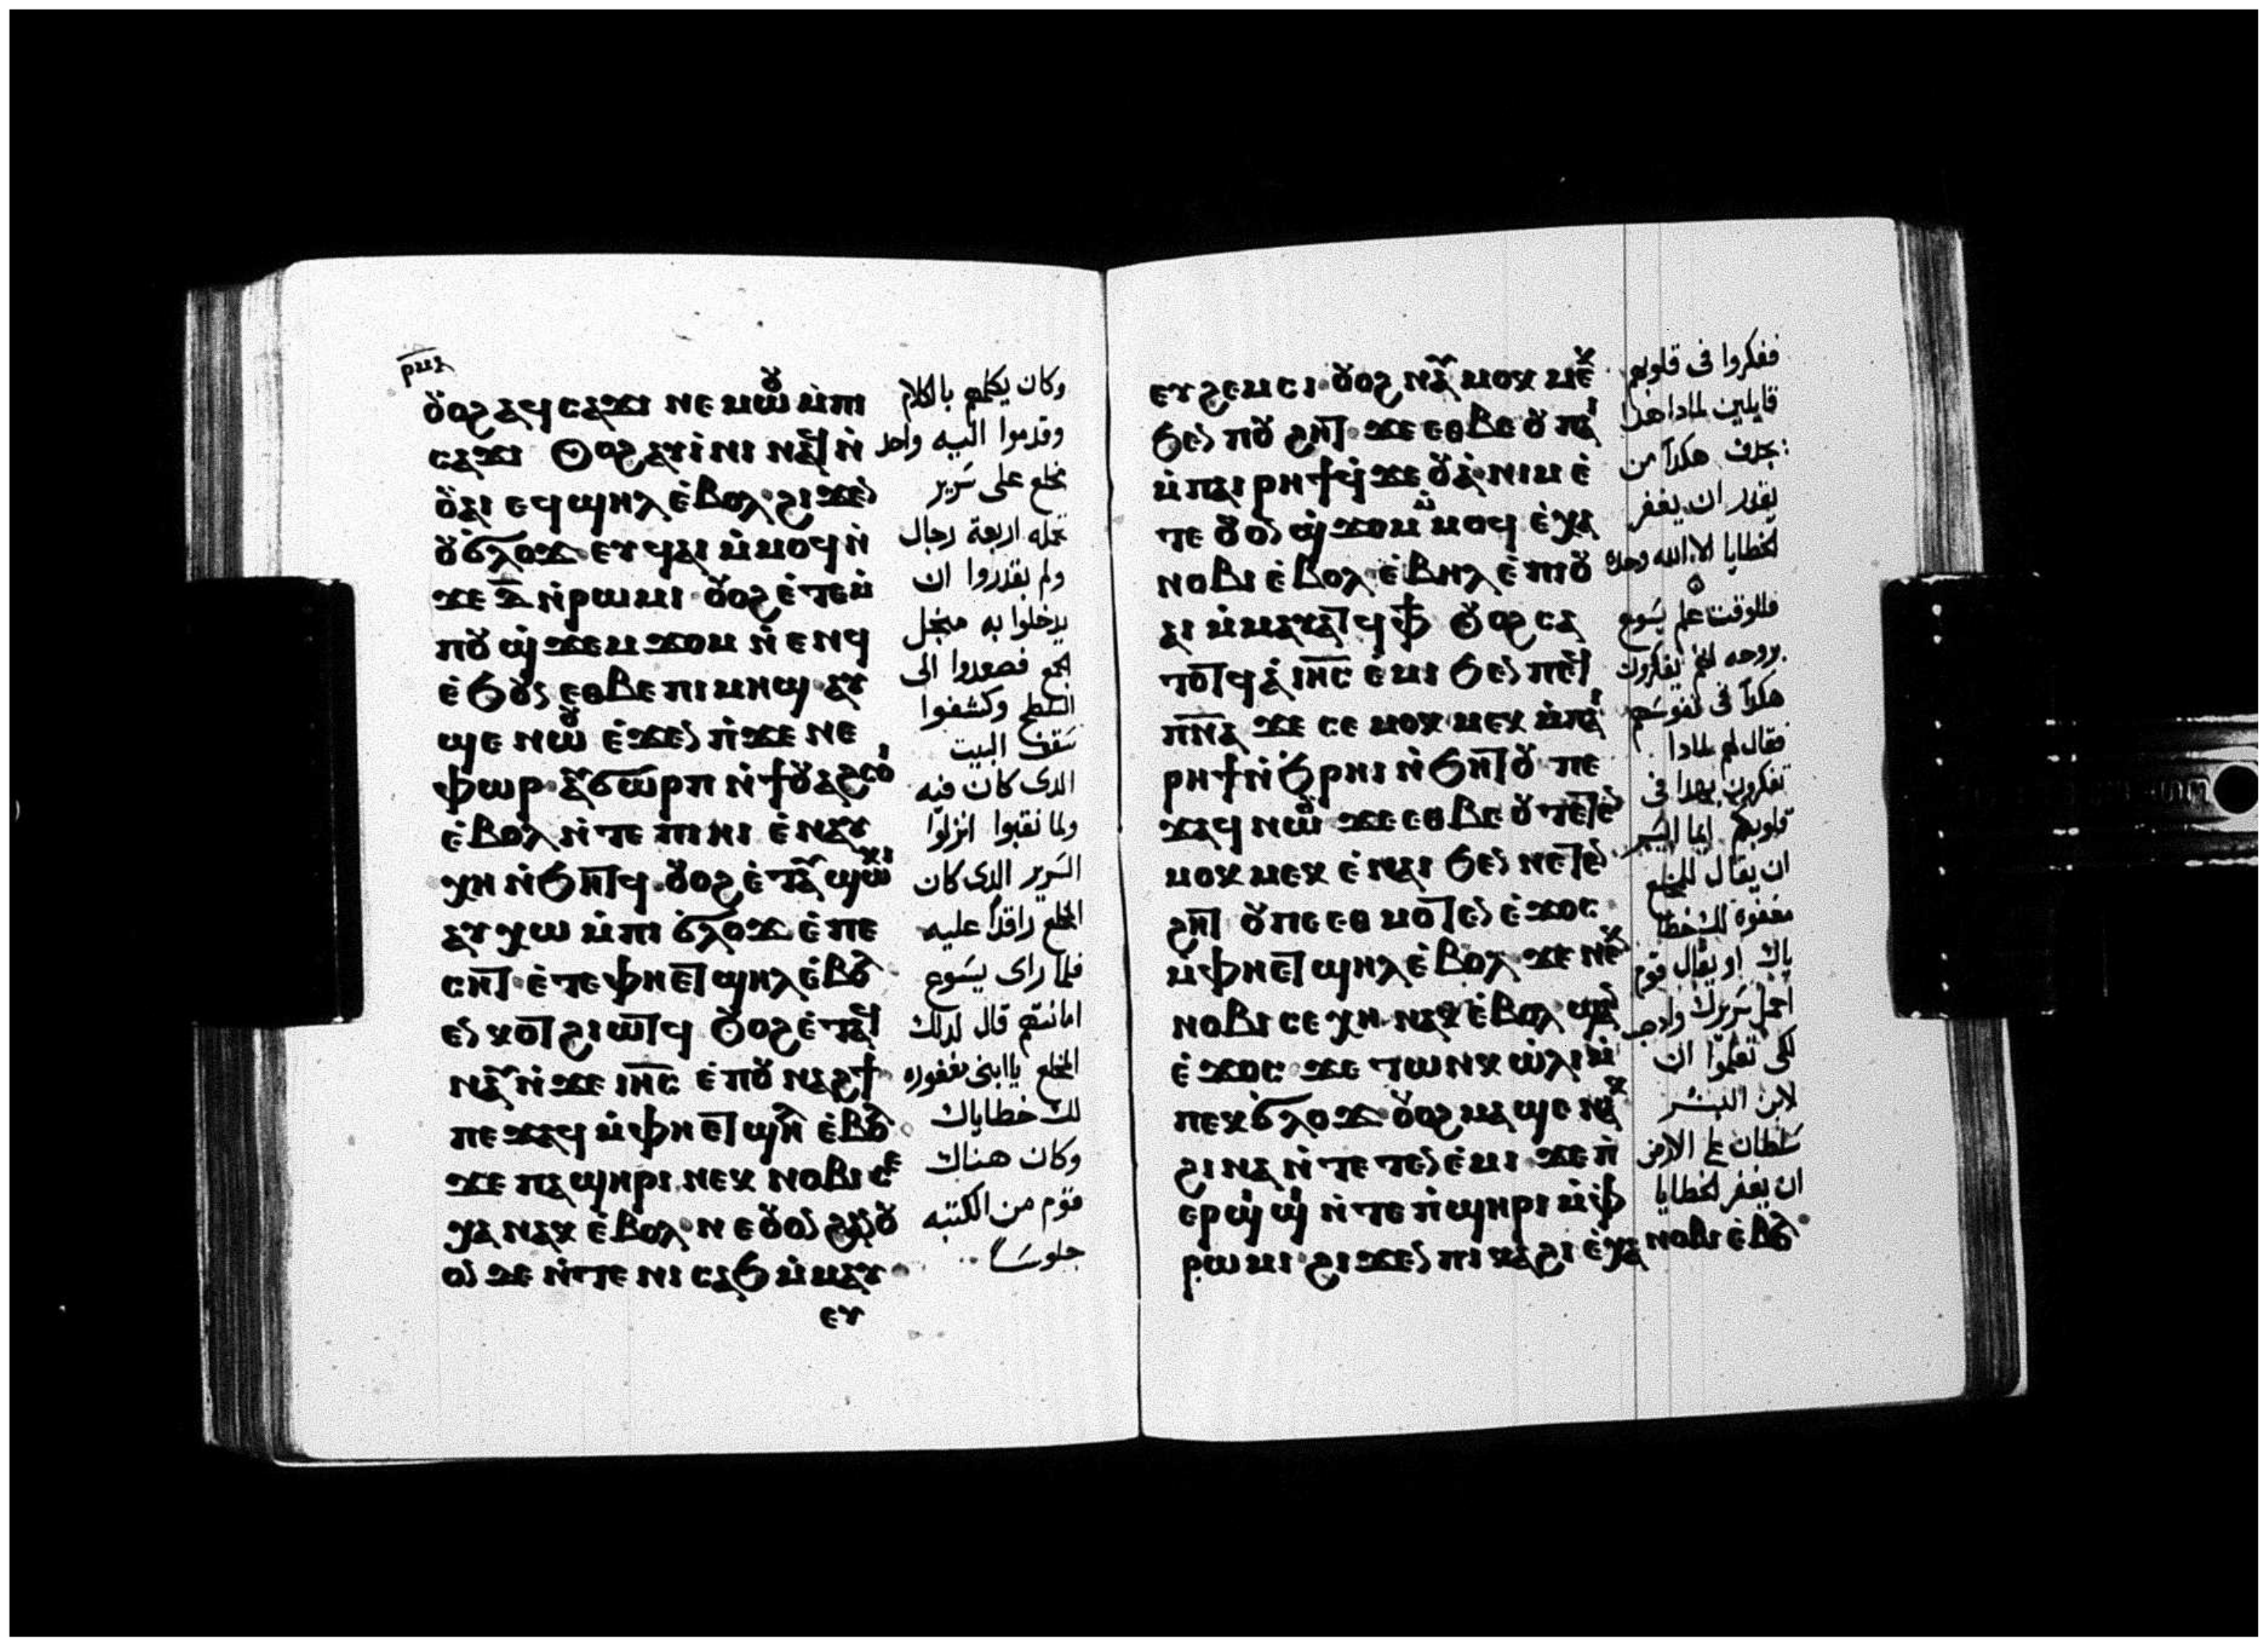 ⲟⲩⲟϩ ⲁϥⲥⲁϫⲓ ⲛⲉⲙⲱⲟⲩ ⲙ̇ⲡⲓ
ⲥⲁϫⲓ ⲟⲩⲟϩ ⲁⲩⲓ̇ⲛⲓ ⲛⲁϥ ⲛ̇
ⲟⲩⲁⲓ ⲉϥϣⲏⲗ ⲉ̇ⲃⲟⲗ ϩⲓϫⲉⲛ
ⲟⲩϭⲗⲟϫ ⲉⲩϥⲁⲓ ⲙ̇ⲙⲟϥ ⲛ̇
ϫⲉ ⲇ̅ ⲛ̇ⲣⲱⲙⲓ ⲟⲩⲟϩ ⲉ̇ⲧⲉⲙ̇
ⲡⲟⲩϣ̇ϫⲉⲙϫⲟⲙ ⲛ̇ⲉⲛϥ
ⲉ̇ϧⲟⲩⲛ ⲉⲑⲃⲉ ⲡⲓⲙⲏϣ ⲁⲩ
ϣⲉ ⲛⲱⲟⲩ ⲉ̇ϫⲉⲛ ⲡ̇ϫⲉⲛⲉ
ⲫⲱⲣ ⲁⲩϭⲱⲣⲡ ⲛ̇ϯⲟⲩⲁϩⲥⲟⲓ
ⲉ̇ⲃⲟⲗ ⲛ̇ⲧⲉ ⲡⲓⲏⲓ ⲉ̇ⲛⲁⲩ
ⲭⲏ ⲛ̇ϧⲏⲧϥ ⲟⲩⲟϩ ⲉ̇ⲧⲁⲩϣⲱⲕⲓ
ⲁⲩⲭⲱ ⲙ̇ⲡⲓϭⲗⲟϫ ⲉ̇ⲡⲉ
ⲥⲏⲧ ⲉ̇ⲧⲉ ⲫⲏⲉⲧϣⲏⲗ ⲉ̇ⲃⲟⲗ
ⲉⲛⲕⲟⲧ ϩⲓⲱⲧϥ ⲟⲩⲟϩ ⲉ̇ⲧⲁϥ
ⲛⲁⲩ ⲛ̇ϫⲉ ⲓⲏ̅ⲥ̅ ⲉ̇ⲡⲟⲩⲛⲁϩϯ
ⲡⲉϫⲁϥ ⲙ̇ⲫⲏⲉⲧϣⲏⲗ ⲉ̇ⲃⲟⲗ
ϫⲉ ⲡⲁϣⲏⲣⲓ ⲛⲉⲕⲛⲟⲃⲓ ⲥⲉ
ⲭⲁ ⲛⲁⲕ ⲉ̇ⲃⲟⲗ ⲛⲉⲟⲩⲟⲛ ϩⲁⲛⲟⲩ
ⲟⲛ ⲇⲉ ⲛ̇ⲧⲉ ⲛⲓⲥⲁϧ ⲙ̇ⲙⲁⲩ
ⲉⲩ
وكان يكلمهم بالكلام
وقدموا اليه واحد
مخلع على سَرير
تحمله اربعة رجال
ولم يقدروا ان
يدخلوا به من اجل
الجمع فصعدوا الى
السَطح وكشفوا
سَقف البيت
الدى كان فيه
ولما نقبوا انزلوا
السَرير الدى كان
المخلع راقدًا عليه
فلما راى يسَوع
امانتهم قال لدلك
المخلع ياابنى مغفوره
لك خطاياك
وكان هناك
قوم من الكتبه
جلوسًا
ⲉⲩϩⲉⲙⲥⲓ ⲟⲩⲟϩ ⲛⲁⲩⲙⲟⲕⲙⲉⲕ
ϧⲉⲛ ⲡⲟⲩϩⲏⲧ ϫⲉ ⲉⲑⲃⲉ ⲟⲩ ⲡⲁⲓ
ⲙ̇ⲡⲁⲓⲣⲏϯ ϥ̇ϫⲉⲟⲩⲁ̇ ⲛⲓⲙ ⲉ̇
ⲧⲉ ⲟⲩⲟⲛ ϣ̇ϫⲟⲙ ⲙ̇ⲙⲟϥ ⲉ̇ⲭⲁ
ⲛⲟⲃⲓ ⲉ̇ⲃⲟⲗ ⲉ̇ⲃⲏⲗ ⲉ̇ⲡⲓⲟⲩ
ⲁⲓ ⲙ̇ⲙⲁⲩⲁⲧϥ ⲫ̅ϯ̅ ⲟⲩⲟϩ ⲥⲁ
ⲧⲟⲧϥ ⲁ̇ ⲓⲏ̅ⲥ̅ ⲉ̇ⲙⲓ ϧⲉⲛ ⲡⲉϥ
ⲡⲛ̅ⲁ̅ ϫⲉ ⲥⲉⲙⲟⲕⲙⲉⲕ ⲙ̇ⲡⲁⲓ
ⲣⲏϯ ⲛ̇ϧⲣⲏⲓ ⲛ̇ϧⲏⲧⲟⲩ ⲡⲉ
ϫⲁϥ ⲛⲱⲟⲩ ϫⲉ ⲉⲑⲃⲉ ⲟⲩ ⲧⲉⲧⲉⲛ
ⲙⲟⲕⲙⲉⲕ ⲉ̇ⲛⲁⲓ ϧⲉⲛ ⲛⲉⲧⲉⲛ
ϩⲏⲧ ⲟⲩ ⲡⲉⲑⲙⲟⲧⲉⲛ ⲉ̇ϫⲟⲥ
ⲙ̇ⲫⲏⲉⲧϣⲏⲗ ⲉ̇ⲃⲟⲗ ϫⲉ ⲛⲉⲕ
ⲛⲟⲃⲓ ⲥⲉⲭⲏ ⲛⲁⲕ ⲉ̇ⲃⲟⲗ ϣⲁⲛ
ⲉ̇ϫⲟⲥ ϫⲉ ⲧⲱⲛⲕ ⲱ̇ⲗⲓ ⲙ̇
ⲡⲉⲕϭⲗⲟϫ ⲟⲩⲟϩ ⲙⲁϣⲉ ⲛⲁⲕ
ϩⲓⲛⲁ ⲛ̇ⲧⲉⲧⲉⲛⲉ̇ⲙⲓ ϫⲉ ⲡ̇
ⲉⲣϣⲓϣⲓ ⲛ̇ⲧⲉ ⲡ̇ϣⲏⲣⲓ ⲙ̇ⲫ̇
ⲣⲱⲙⲓ ϩⲓϫⲉⲛ ⲡⲓⲕⲁϩⲓ ⲉ̇ⲭⲁ ⲛⲟⲃⲓ ⲉ̇ⲃⲟⲗ
ففكروا فى قلوبهم
قايلين لمادا هدا
يجدف هكدا من
يقدر ان يغفر
الخطايا الا الله وحده
فللوقت علم يسَوع
بروحه انهم يفكرون
هكدا فى نفوسَهم
فقال لهم لمادا
تفكرون بهدا فى
قلوبكم ايما ايسر
ان يقال للمخلع
مغفورة لك خطا
ياك او يقال قوم
احمل سَريرك وادهب
لكى تعلموا ان
لابن البشر
سَلطان على الارض
ان يغفر الخطايا